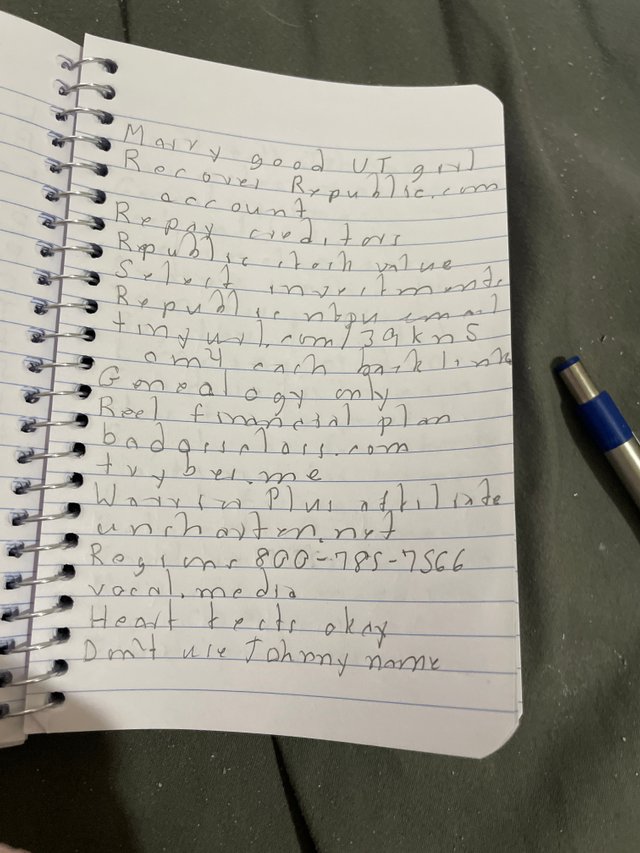 Marry good UT girl
Recover Republic.com
account
Repay creditors
Republic stock value
Select investments
Republic ntpu email
tinyurl.com/39kn5
om4 cash back link
Genealogy only
Reel financial plan
badgrsalass.com
trybei.me
Warrior Plus affiliate
unchartxn.net
Regions 800-785-7566
vocal.media
Heart tests okay
Don't use Johnny name